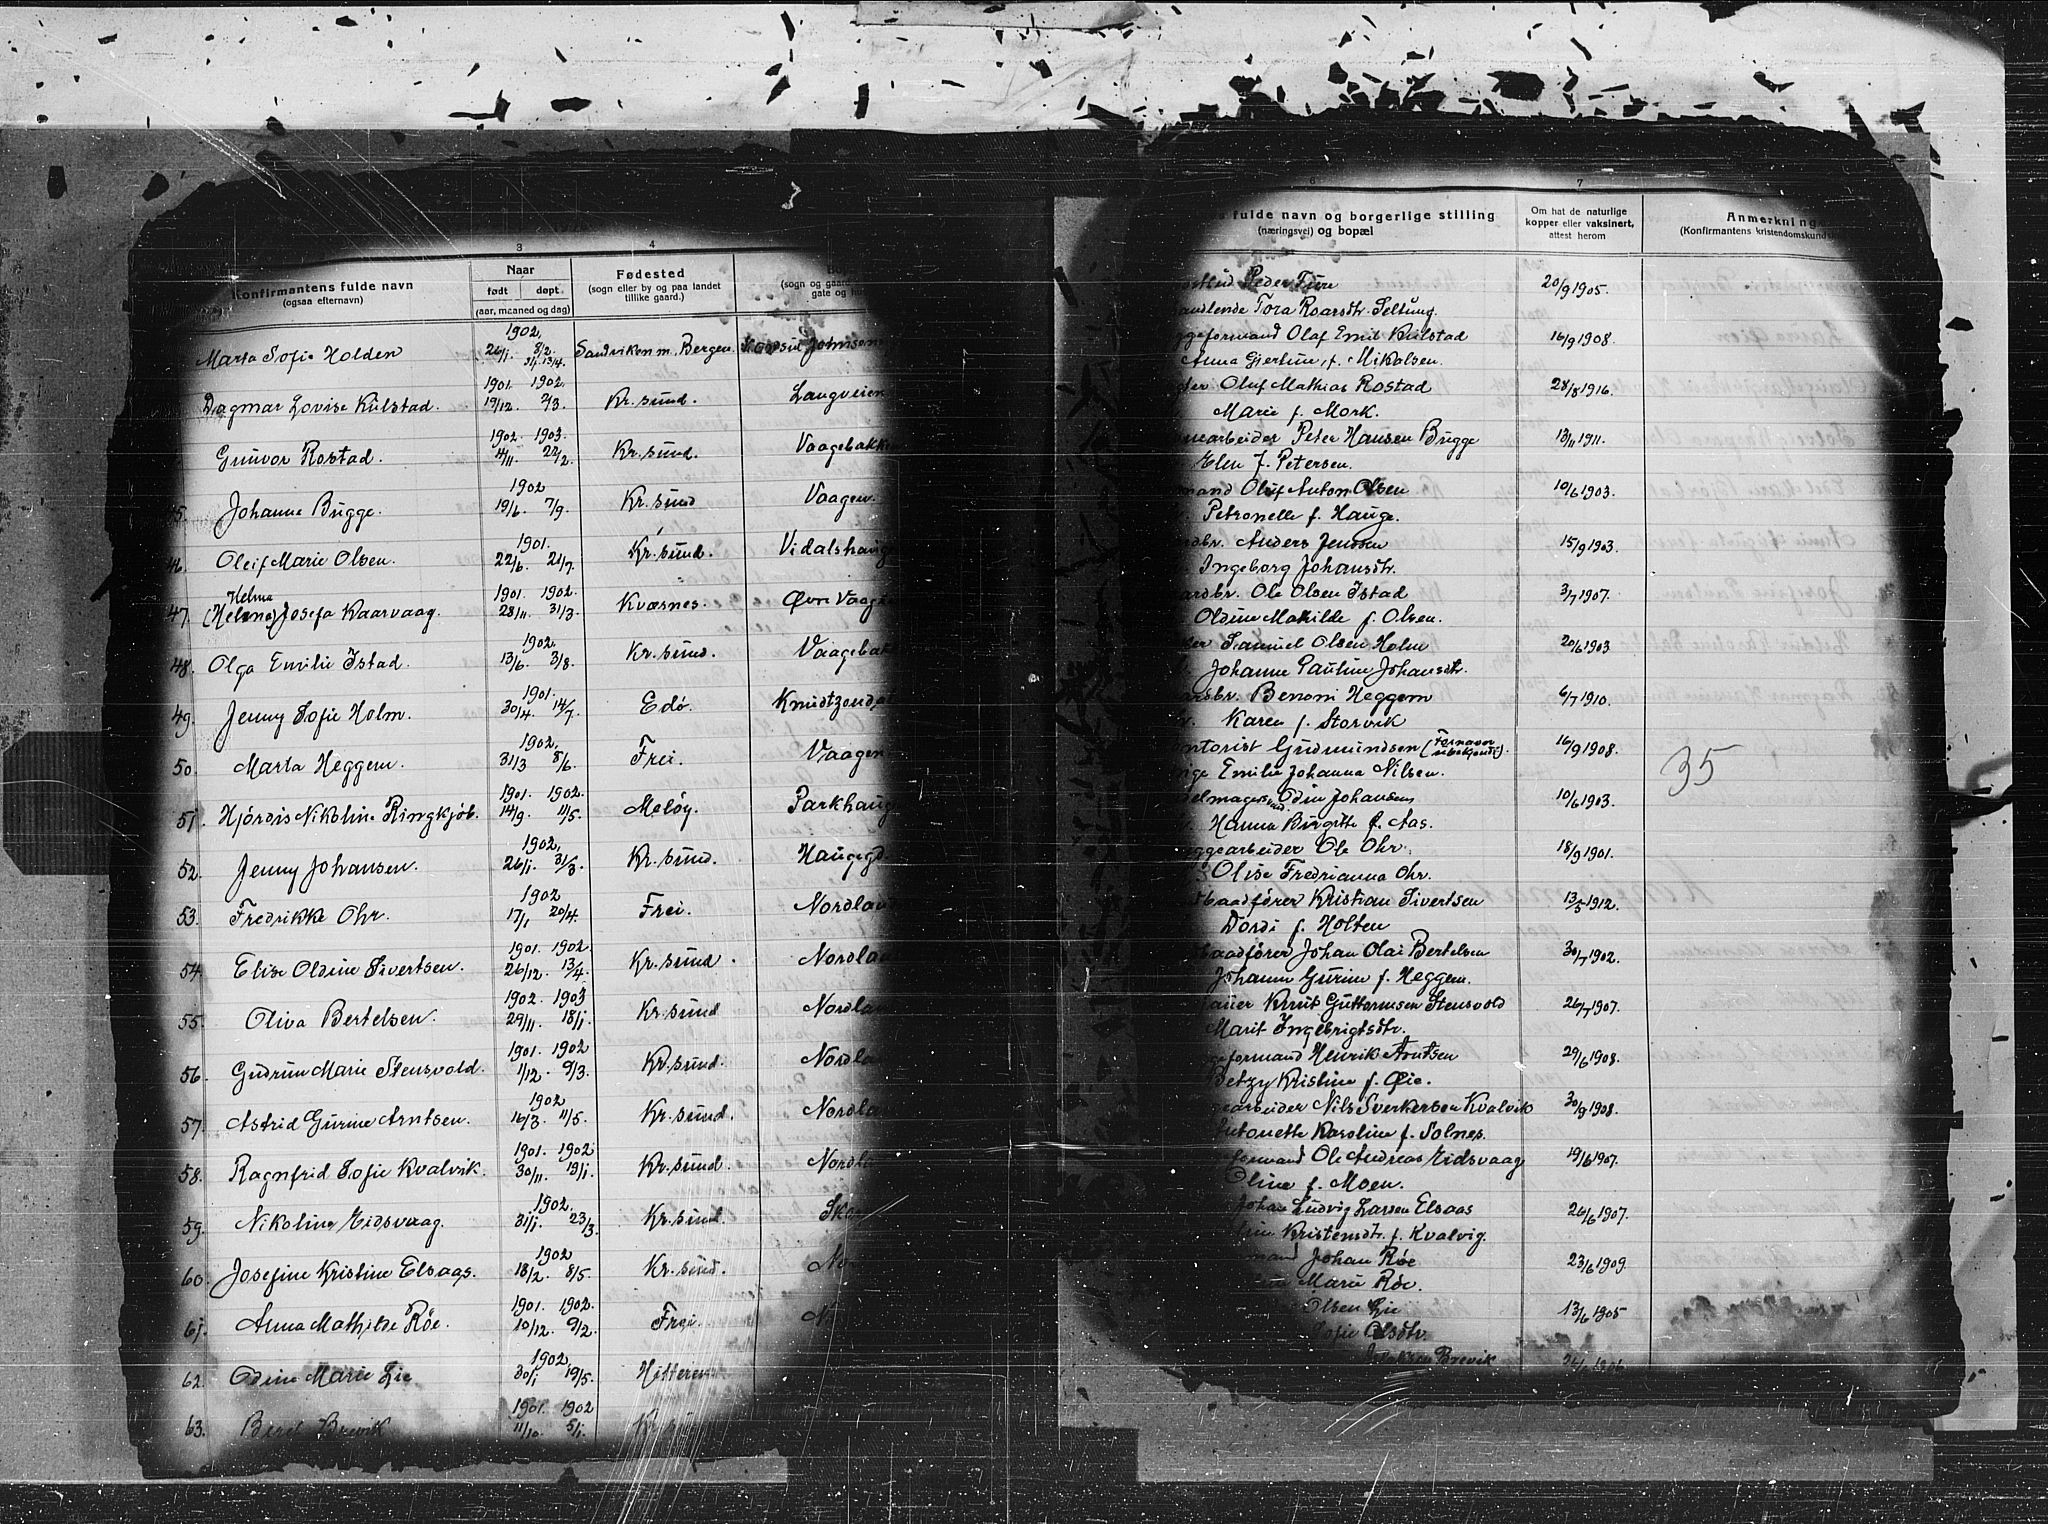 3 4
Konfirmantens fulde navn
(ogsaa efternavn)
Naar
født døpt
(aar, maaned og dag)
Fødested
(sogn eller by og paa landet
tillike gaard.)
(sogn og gaard
gate og
1902.
Marta Sofie Holden 26/1. 8/2. Sandviken m. Bergen
1901. 1902.
Dagmar Lovise Kulstad. 19/12. 2/3. Kr.sund. Langveien
1902. 1903.
Gunvor Rostad. 4/11 22/2. Kr.sund. Vaagebakken
1902
45. Johanna Bugge. 19/6. 7/9. Kr.sund Vaagen.
1901.
46. Oleif Marie Olsen. 22/6. 21/7. Kr.sund. Vidalshaug
Helma 1901. 1902.
47. (Helena) Josefa Kaarvaag. 28/11. 31/3. Kværnes. Øvre Vaag
1902.
48. Olga Emilie Istad. 13/6. 3/8. Kr.sund. Vaagebak
1901.
49. Jenny Sofie Holm. 30/4. 14/7. Edö. Knudtzond
1902.
50. Marta Heggem. 31/3 8/6. Frei. Vaagen
1901. 1902.
51. Hjördis Nikoline Ringkjöb. 14/9. 11/5. Melöy. Parkhaug
1902.
52. Jenny Johansen. 26/1. 31/3. Kr.sund. Haugegd.
1902
53. Fredrikke Ohr. 17/1 20/4. Frei. Nordlan
1901. 1902.
54. Elise Oldine Sivertsen. 26/12. 13/4. Kr.sund. Nordlan
1902. 1903
55. Oliva Bertelsen. 29/11. 18/1. Kr.sund Nordlan
1901. 1902
56. Gudrun Marie Stensvold. 1/12. 9/3. Kr.sund. Nordla
1902
57. Astrid Gurine Arntsen. 16/3. 11/5. Kr.sund. Nordla
1901. 1902
58. Ragnfrid Sofie Kvalvik. 30/11. 19/1. Kr.sund. Nordl
1902.
59. Nikoline Eidsvaag. 31/1. 23/3. Kr.sund. Sko
1902
60. Josefine Kristine Elsaas. 18/2. 8/5. Kr.sund. No
1901. 1902.
61. Anna Mathilde Röe. 10/12. 9/2. Frei. N
1902.
62. Odine Marie Lie 30/1 19/5. Hitteren
1901. 1902
63. Beret Brevik 11/10. 5/1. Kr.sun
6 7
fulde navn og borgerlige stilling
(næringsvei) og bopæl
Om hat de naturlige
kopper eller vaksinert,
attest herom
Anmerkninge
(Konfirmantens kristendomskundsk
Peder Fure 20/9 1905.
Tora Roarsdtr. Seltung.
geformand Olaf Emil Kulstad 16/9 1908.
Anna Gjertine f. Mikalsen.
Oluf Mathias Rostad 28/8 1916.
Marie f. Mork.
arbeider Peter Hansen Bugge 13/11 1911.
Elen f. Petersen.
mand Oluf Anton Olsen 10/6 1903.
Petronelle f. Hauge.
dbr. Anders Jenssen 15/9 1903.
Ingeborg Johansdtr.
ardbr. Ole Olsen Istad 3/7 1907.
Oldine Mathilde f. Olsen.
Samuel Olsen Holm 20/6 1903
Johanne Pauline Johansdtr.
ardsbr. Benoni Heggem 6/7 1910.
Karen f. Storvik
ntorist Gudmundsen (Fornavn ubekjendt). 16/9 1908.
Emilie Johanna Nilsen.
35
elmagersvd. Odin Johansen 10/6 1903.
Hanna Birgitte f. Aas.
ggearbeider Ole Ohr. 18/9 1901.
Olise Fredrianna Ohr.
baadfører Kristian Sivertsen 13/5 1912.
Dordi f. Holten
baadfører Johan Olai Bertelsen 30/7 1902.
Johanna Gurine f. Heggem.
Knut Guttormsen Stensvold 26/7 1907.
Marit Ingebrigtsdtr.
geformand Henrik Arntsen 29/6 1908.
Betzy Kristine f. Øie.
gearbeider Nils Sverkersen Kvalvik 30/9 1908.
Antonette Karoline f. Solnes.
formand Ole Andreas Eidsvaag 19/6 1907.
Oline f. Moen.
Johan Ludvig Larsen Elsaas 26/6 1907.
Kristensdtr. f. Kvalvig.
mand Johan Röe 23/6 1909.
Marie Röe.
Olsen Lie 13/6 1905
Sofie Olsdtr.
Brevik